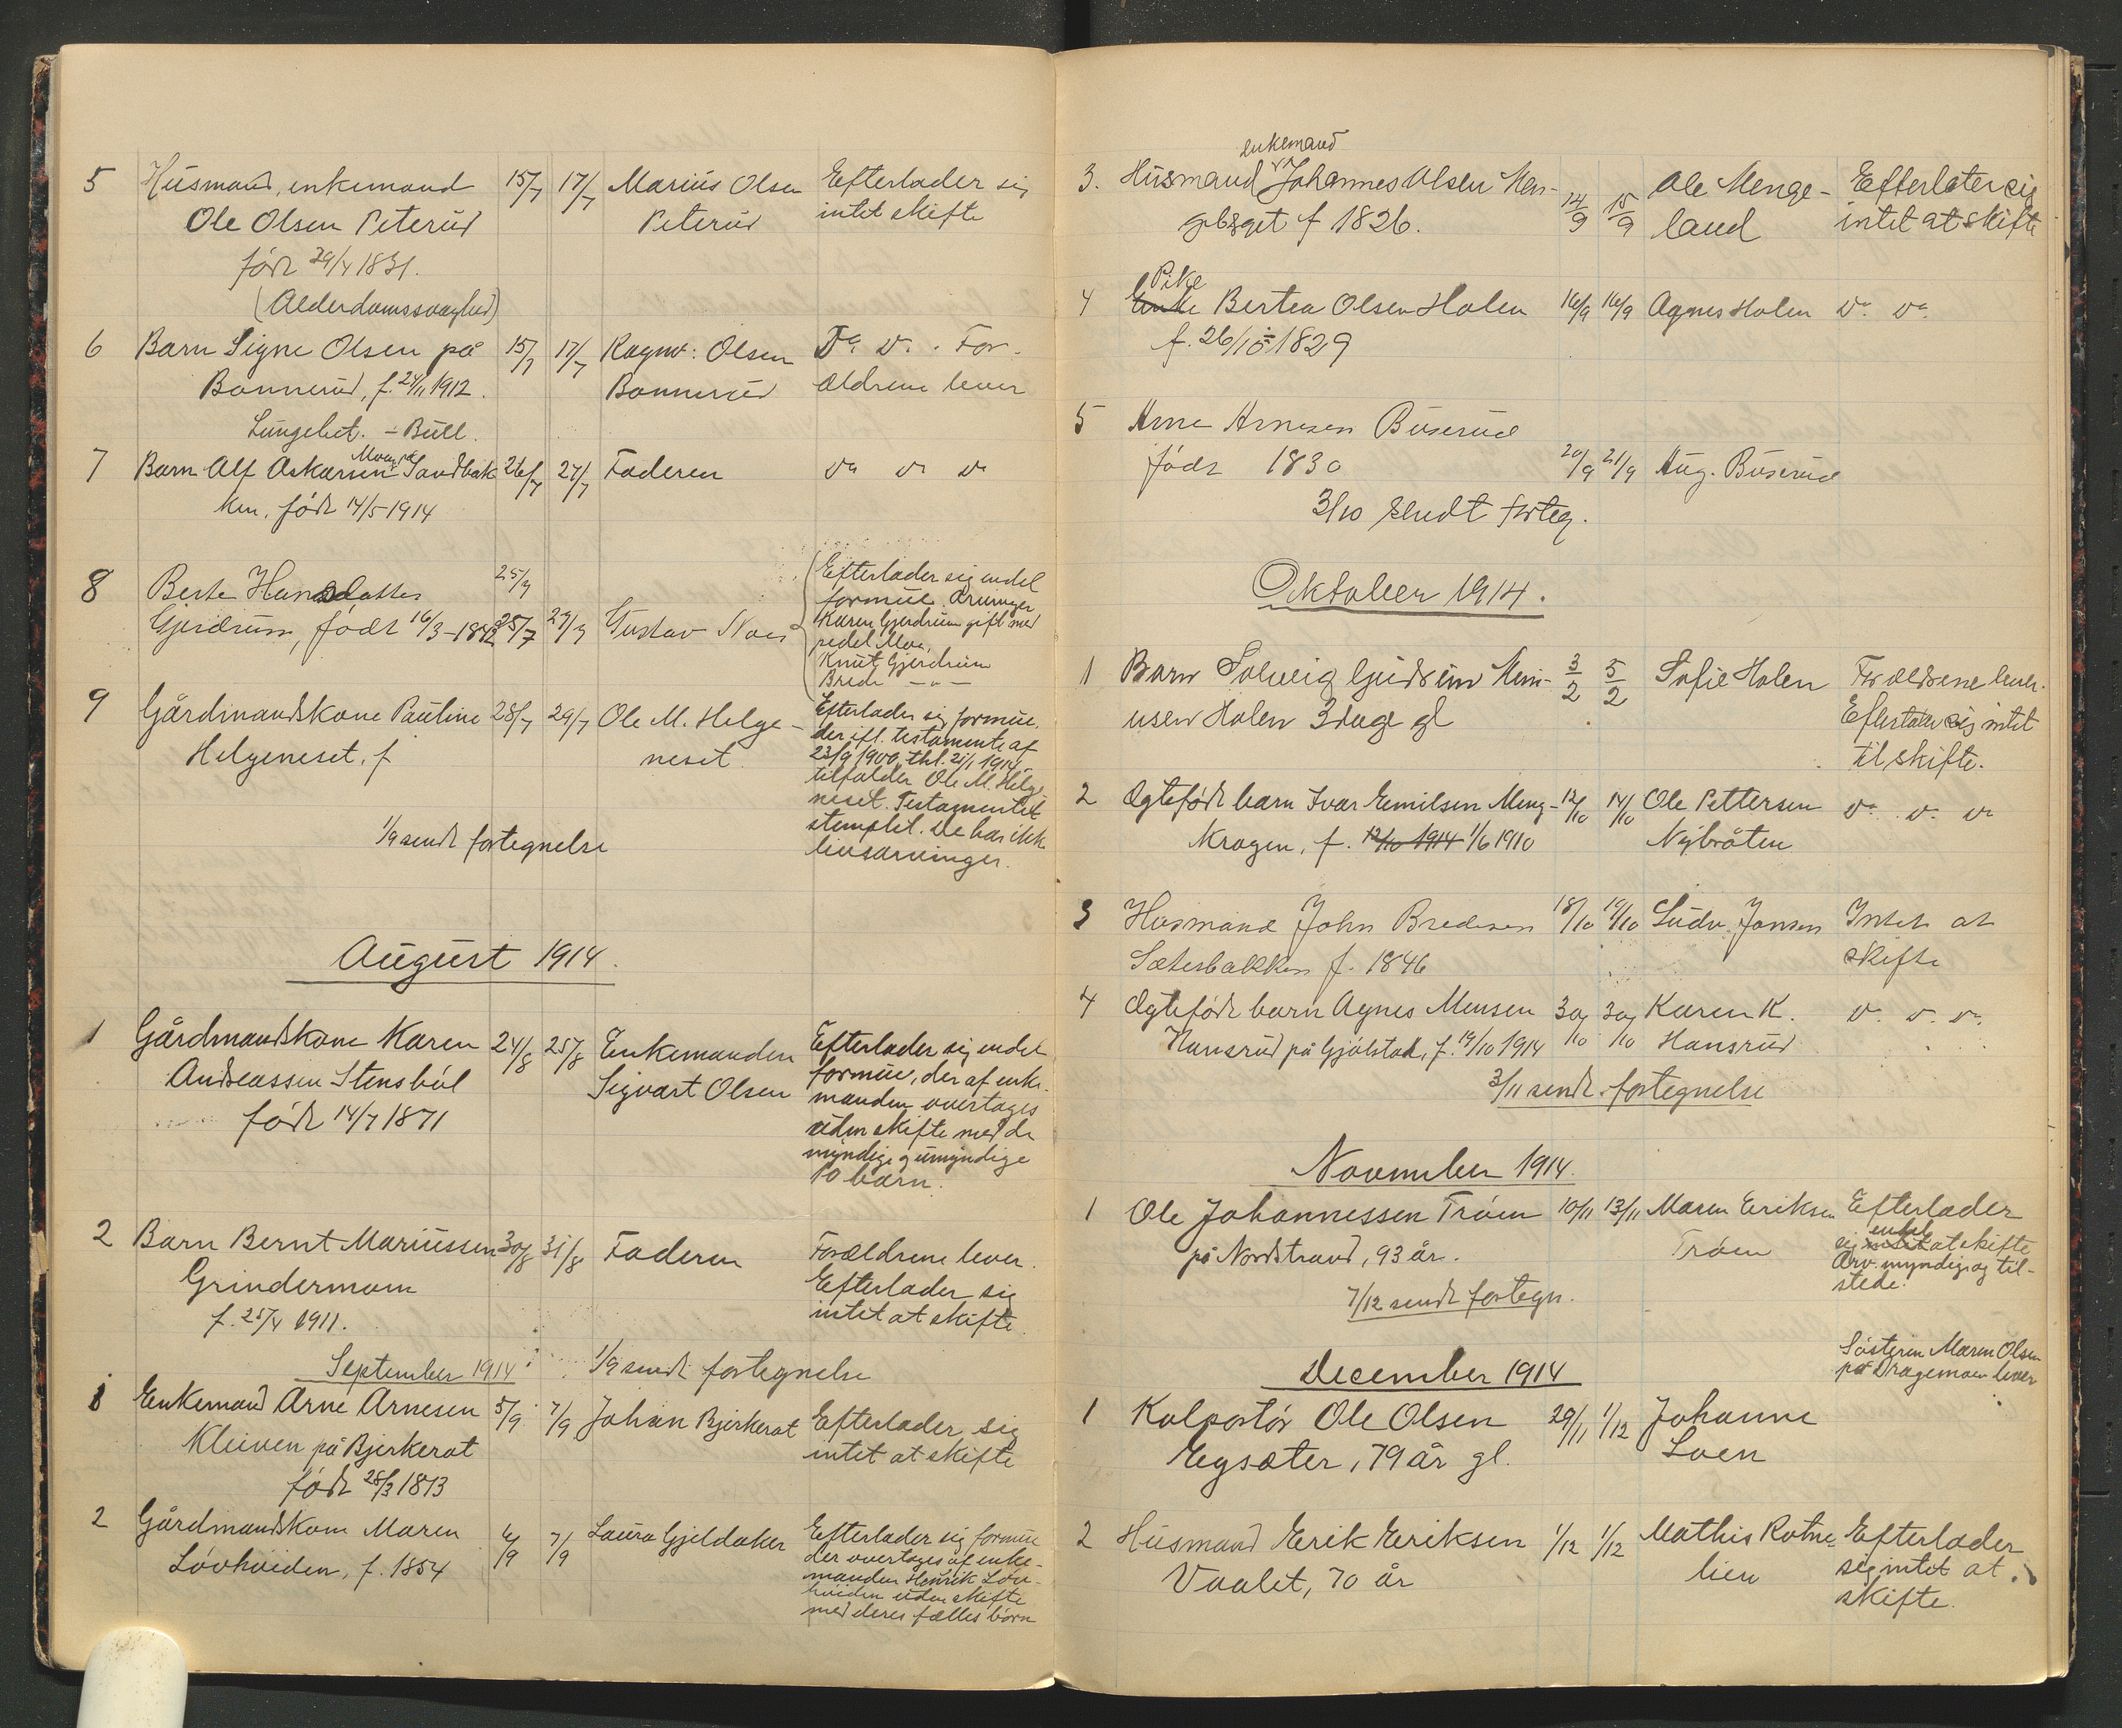 5 Husmand, enkemand 15/7 17/7 Marius Olsen Efterlader sig
Ole Olsen Peterud Peterud intet skifte
född 29/4 1831.
(Alderdomssvaghed)
6 Barn Signe Olsen på 15/7 17/7 Ragnv: Olsen Do Do. For-
Bonnerud, f. 24/11 1912. Bonnerud ældrene lever
Lungebet. - Bull.
7 Barn Alf Oskarsen Moen på Sandbak- 26/7 27/7 Faderen do do do
ken, född 14/5 1914
8 Berte Hansdatter 25/7
Gjerdrum, född 16/3 - 1842 25/7 29/7 Gustav Noes
Efterlader sig endel
formue. Arvinger
Karen Gjerdrum gift med
Moen,
Knut Gjerdrum
Brede - " -
9 Gårdmandskone Pauline 28/7 29/7 Ole M. Helge-
Helgeneset, f neset
Efterlader sig formue,
der ifl. testamente af
23/9 1900, thl. 21/1 1914
tilfalder Ole M. Helge-
neset. Testamentet
stemplet. De har ikke
livsarvinger.
1/9 sendt fortegnelse
August 1914.
1 Gårdmandskone Karen 24/8 25/8 Enkemanden
Andreassen Stensbøl Sigvart Olsen
född 14/7 1871
Efterlader sig endel
formue, der af enke-
manden overtages
uden skifte med de
myndige og umyndige
10 barn.
2 Barn Bernt Mariussen 30/8 31/8 Faderen Forældrene lever.
Grindermoen Efterlader sig
f. 25/4 1911. intet at skifte
September 1914 1/9 sendt fortegnelse
1 Enkemand Arne Arnesen 5/9 7/9 Johan Bjerkerot Efterlader sig
Kleiven på Bjerkerot intet at skifte
född 28/3 1813
2 Gårdmandskone Maren 6/9 7/9 Laura Gjeldaker
Løvhøiden, f. 1854
Efterlader sig formue
der overtages af enke-
manden Henrik Løv-
høiden uden skifte
med deres fælles børn
enkemand
3. Husmand Johannes Olsen Men- 14/9 15/9 Ole Menge- Efterlater sig
f 1826. land intet at skifte
Pike
4 Enke Bertea Olsen Holen 16/9 16/9 Agnes Holen do do
f. 26/10 1829
5 Arne Arnesen Buserud
født 1830 20/9 21/9 Aug. Buserud
3/10 sendt forteg.
Oktober 1914.
1 Barn Solveig Gudrun 3/2 5/2 Sofie Holen Forældrene lever.
usen Holen 3 dage gl Efterlater sig intet
til skifte.
2 Ægtefödt barn Ivar Emilsen Meng- 12/10 14/10 Ole Pettersen do. do. do
kragen, f. 12/10 1914 1/6 1910 Nybråten
3 Husmand John Bredesen 18/10 19/10 Ludv. Jansen Intet at
Sæterbakken f. 1846 skifte
4 Ægtefödt barn Agnes Mensen 30/10 30/10 Karen K. do. do. do.
Hansrud på Gjölstad, f. 19/10 1914 Hansrud
3/11 sendt fortegnelse
November 1914.
1 Ole Johannessen Tröen 10/11 13/11 Maren Eriksen Efterlader
på Nordstrand, 93 år. Tröen sig intet endel at skifte
Arv. myndige og til-
stede.
7/12 sendt fortegn.
December 1914
Søsteren Maren Olsen
på Dragemoen lever
1 Kolportör Ole Olsen 29/11 1/12 Johanne
Egsæter, 79 år gl. Loen
2 Husmand Erik Eriksen 1/12 1/12 Mathis Rotne- Efterlader
Vaalet, 70 år lien sig intet at
skifte.